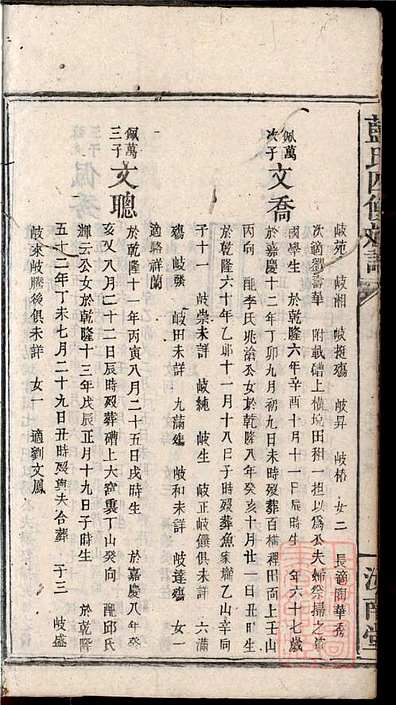 彭氏四修族譜
岐苑　岐湘　岐挺殤　岐昇　岐椿　女二　長適閻華秀
次適劉壽華　附載磡上橫塅田租一担以為公夫婦祭掃之資
佩萬次子
文喬
國學生　於乾隆六年辛酉十月十一日辰時生　年六十七歲
於嘉慶十二年丁卯九月初九日未時歿葬百橫裡田面上壬山
丙向　配李氏兆滄公女於乾隆八年癸亥十月廿一日丑時生
於乾隆六十年乙卯十一月十八日子時歿葬魚家壠乙山辛向
子十一　岐崇未詳　岐純　岐生　岐正岐僎俱未詳　六滿
殤　岐發　岐田未詳　九滿殤　岐和未詳　岐蓬殤　女一
適駱祥蘭
佩萬三子
文聰
於乾隆十一年丙寅八月二十五日戌時生　於嘉慶八年癸
亥八月二十二日辰時歿葬磡上大窩裏丁山癸向　配邱氏
輝云公女於乾隆十三年戊辰正月十九日子時生　於乾隆
五十二年丁未七月二十九日丑時歿與夫合葬　子三　岐盛
岐來岐騰後俱未詳　女一　適劉文鳳